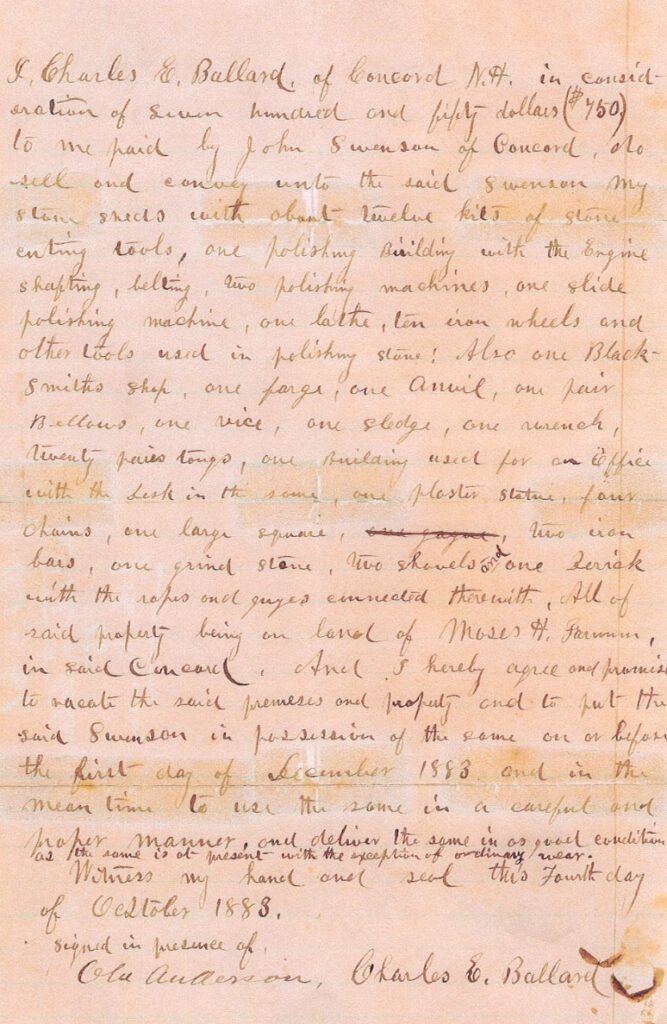 I, Charles E. Ballard, of Concord N.H. in consid-
eration of seven hundred and fifty dollars ($750)
to me paid by John Swenson of Concord, do
sell and convey unto the said Swenson my
stone sheds with about twelve kits of stone
cuting tools, one polishing Building with the Engine
shafting, belting, two polishing machines, one slide
polishing machine, one lathe, ten iron wheels and
other tools used in polishing stone! Also one Black-
smiths shop, one forge, one Anvil, one pair
Bellows, one vice, one sledge, one wrench,
twenty pairs tongs, one Building used for an Office
with the Desk in the same, one plaster statue, four
chains, one large square, one gague, two iron
bars, one grind stone, two shovels and one Derrick
with the ropes and guyes connected therewith, All of
said property being on land of Moses H. Farnum,
in said Concord. And I hereby agree and promise
to vacate the said premeses and property and to put the
said Swenson in possession of the same on or before
the first day of December 1883 and in the
mean time to use the same in a careful and
proper manner, and deliver the same in as good condition
as the same is at present with the exception of ordinary wear.
Witness my hand and seal this Fourth day
of October 1883.
signed in presence of
Ola Anderson, Charles E. Ballard